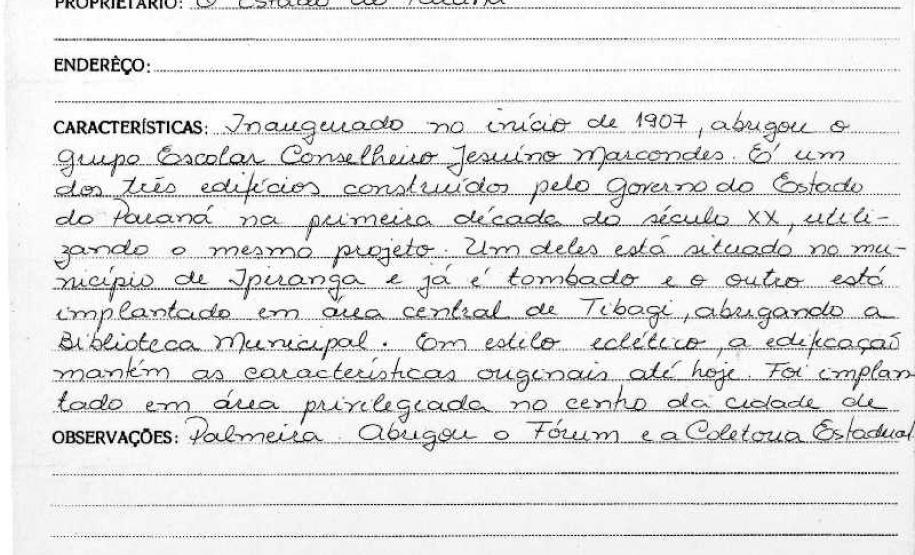 PROPRIETÁRIO: O Estado do Paraná
ENDERÊÇO:
CARACTERÍSTICAS: Inaugurado no início de 1907, abrigou o
Grupo Escolar Conselheiro Jesuíno Marcondes. É um
dos três edifícios construídos pelo Governo do Estado
do Paraná na primeira década do século XX, utili-
zando o mesmo projeto. Um deles está situado no mu-
nicípio de Ipiranga e já é tombado e o outro está
implantado em área central de Tibagi, abrigando a
Biblioteca Municipal. Em estilo eclético, a edificação
mantém as características originais até hoje. Foi implan
tado em área privilegiada no centro da cidade de
OBSERVAÇÕES: Palmeira. Abrigou o Fórum e a Coletoria Estadual